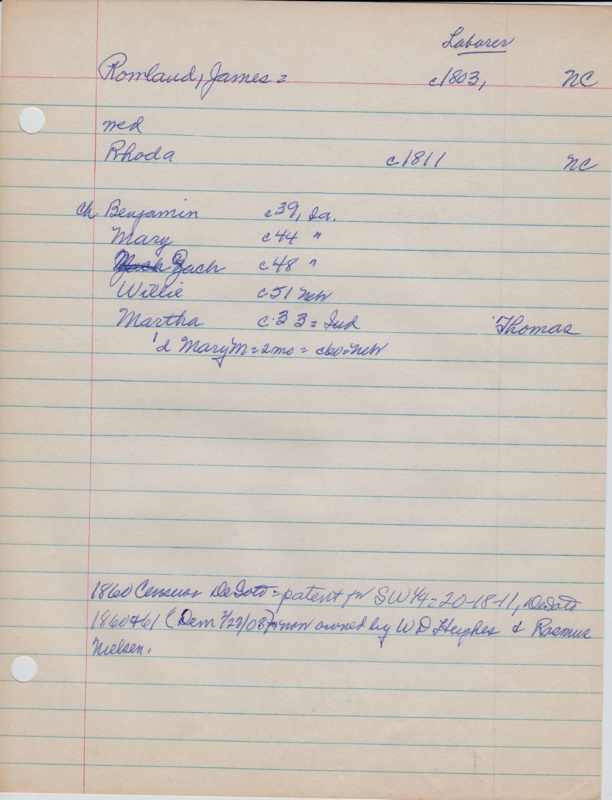 Laborer
Romland, James = c1803, NC
med
Rhoda c1811 NC
ch Benjamin c39, Ia.
Mary c44 "
Zach c48 "
Willie c51 Neb
Martha c33 = Ind Thomas
1 d Mary M = 2mo = c60 = Neb
1860 Census DeSoto = patent for SW 1/4 = 20-18-11, DeSoto
1860+61 (Dem 7/27/08) now owned by W D Hughes & Rasmus
Nielsen.